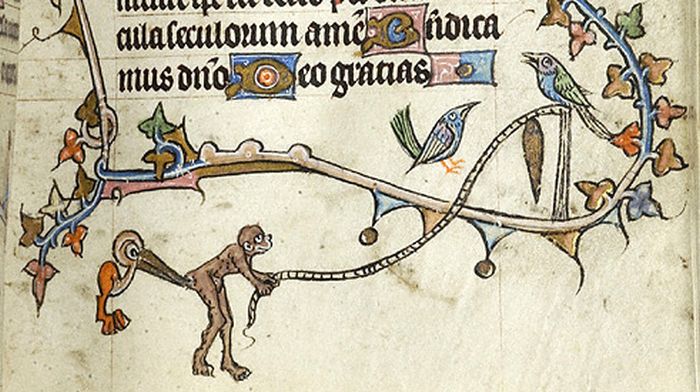 cula seculorum amē Bñdica
mus dño Deo gracias